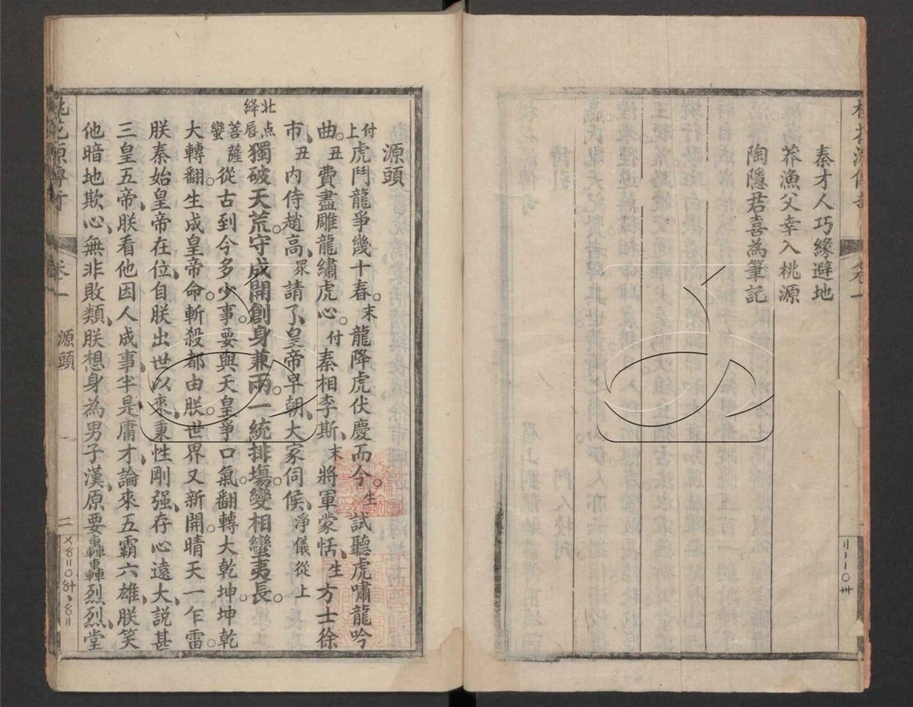 秦才人巧緣避地
莽漁父幸入桃源
陶隱君喜為筆記
源頭
付上虎鬥龍爭幾十春。末龍降虎伏慶而今。生試聽虎嘯龍吟
曲。丑費盡雕龍繡虎心。付秦相李斯、末將軍蒙恬、生方士徐
市、丑內侍趙高、眾請了、皇帝早朝、大家伺候、淨儀從上
北點絳唇獨破天荒。守成開創身兼兩。一統排場。變相蠻夷長。
菩薩蠻從古到今多少事。要與天皇爭口氣。翻轉大乾坤。坤乾
大轉翻。生成皇帝命。斬殺都由朕。世界又新開。晴天一乍雷。
朕秦始皇帝在位、自朕出世以來、秉性剛强、存心遠大、說甚
三皇五帝、朕看他因人成事、半是庸才、論來五霸六雄、朕笑
他暗地欺心、無非敗類、朕想身為男子漢、原要轟轟烈烈、堂
桃花源傳奇
卷一
源頭
二